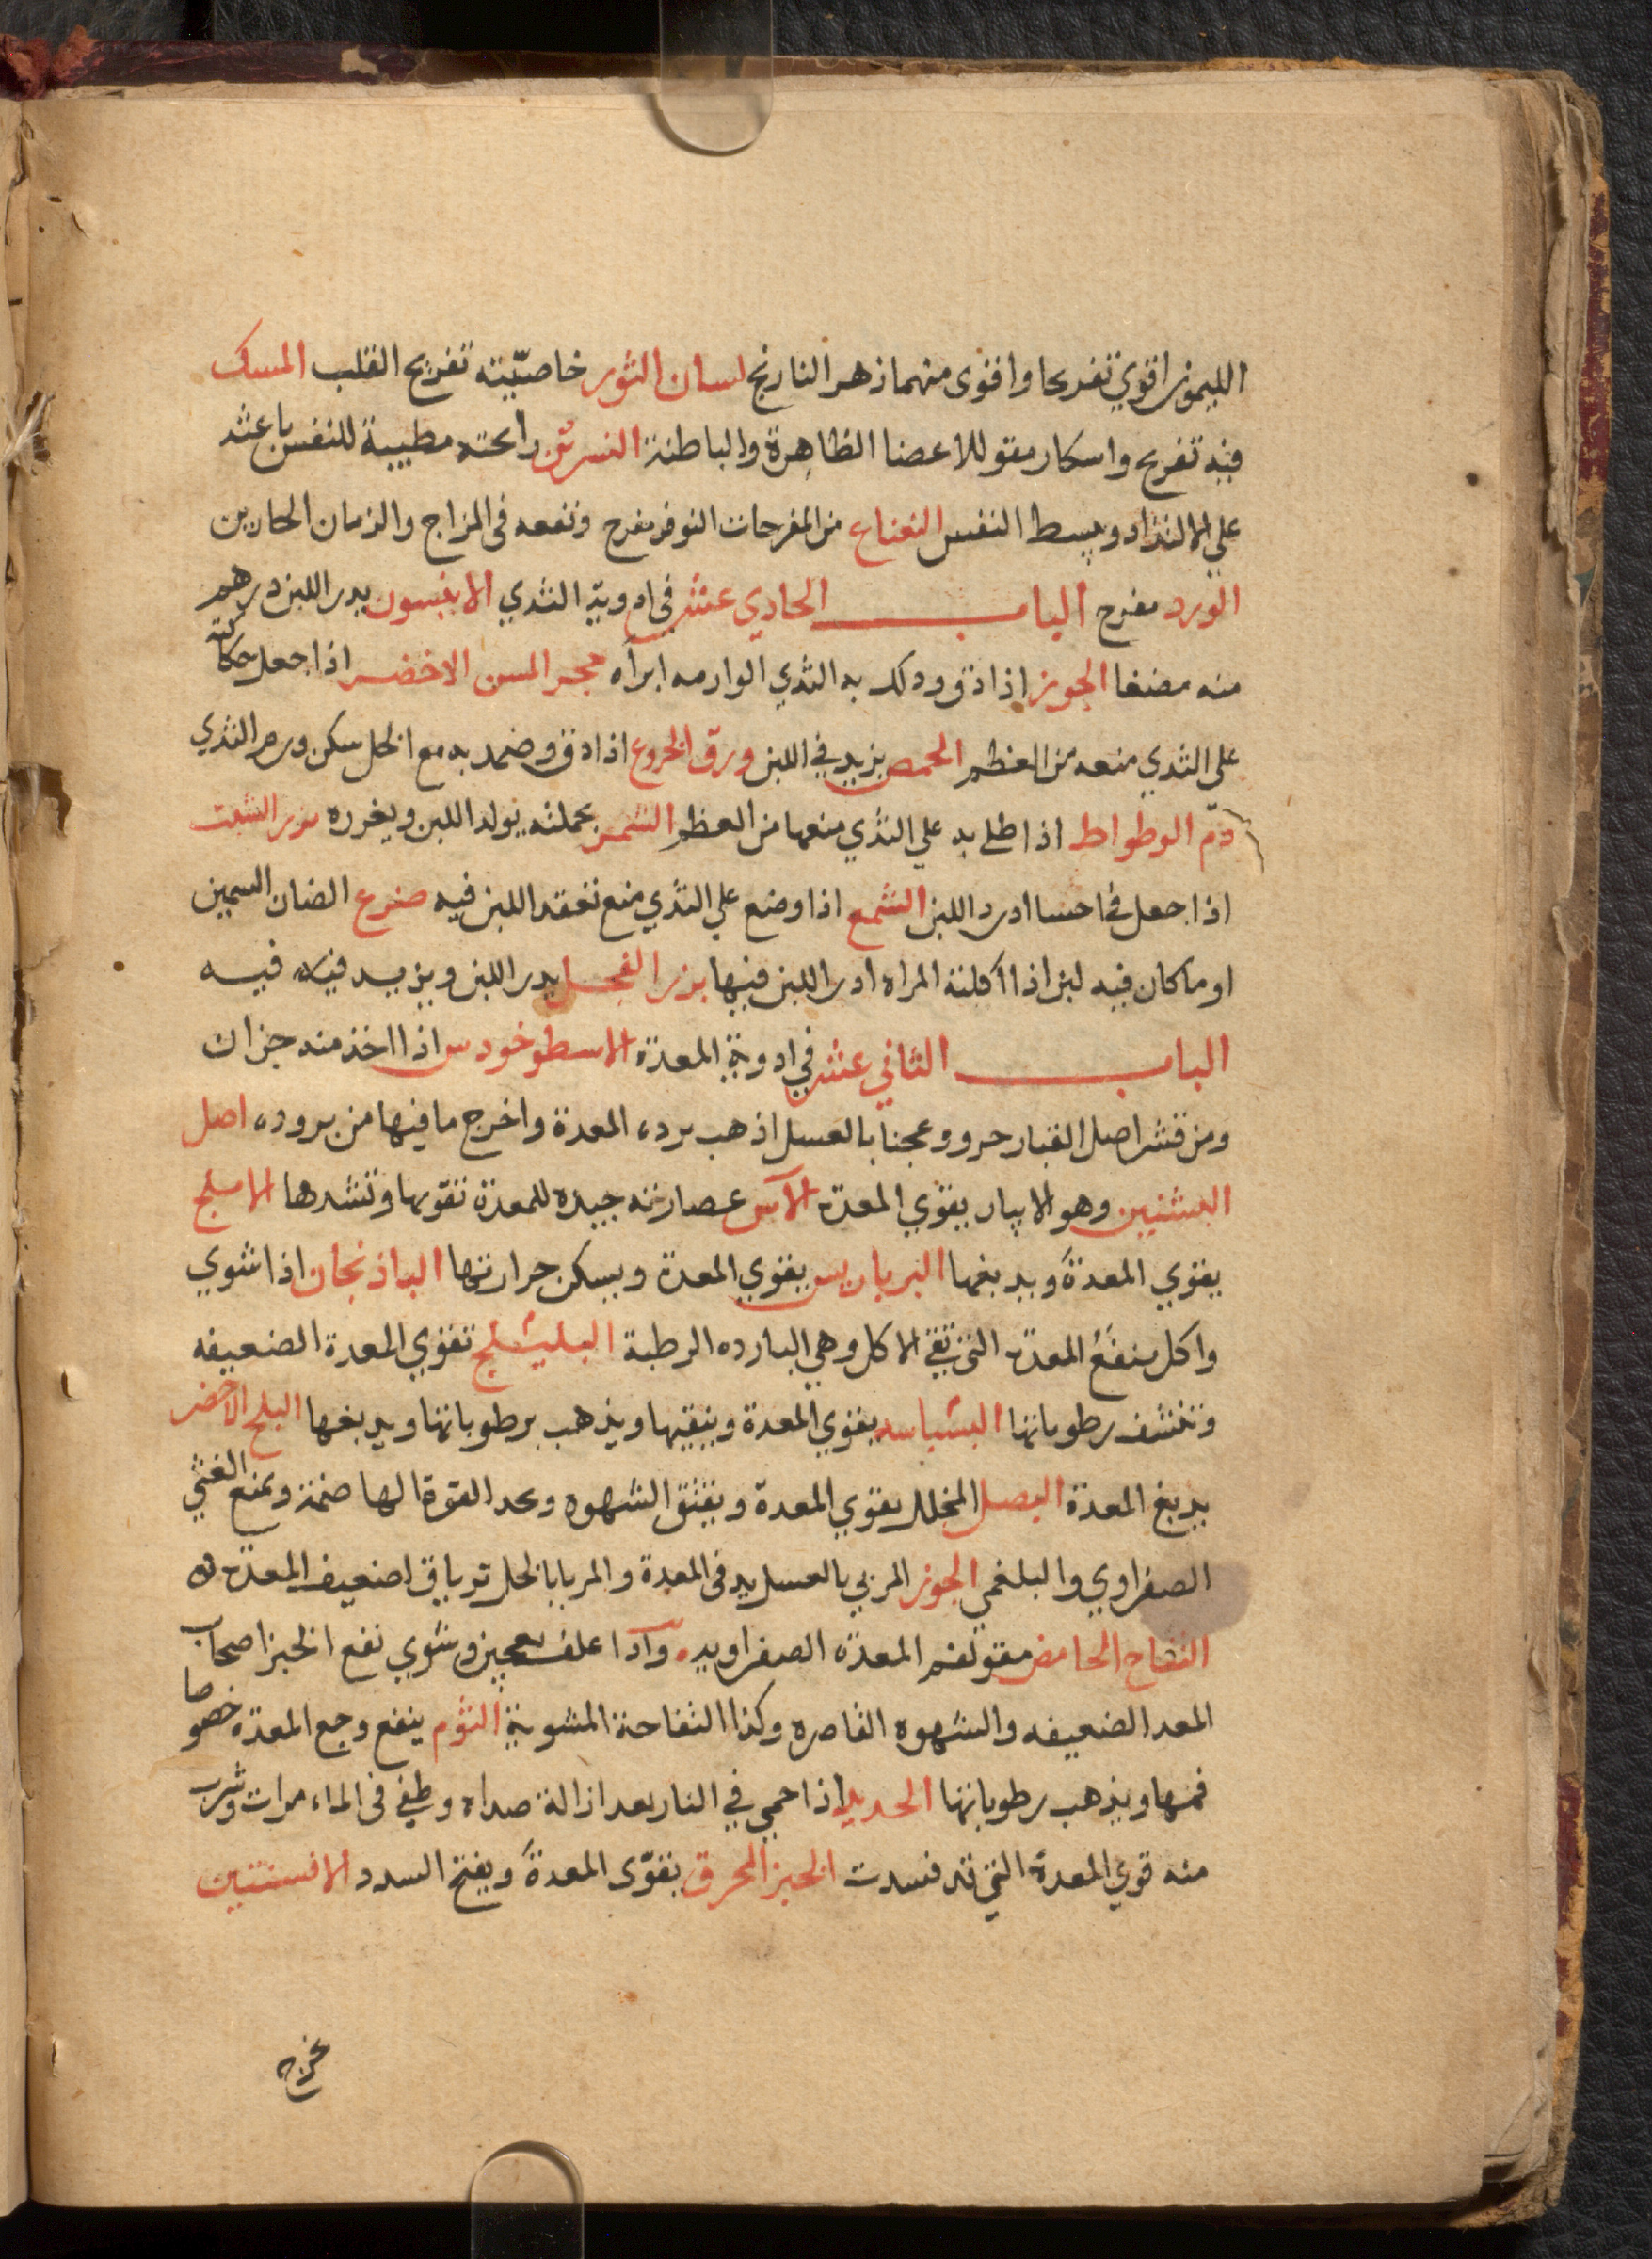 الليمون اقوي تفريحا واقوى منهما زهر النارنج لسان الثور خاصيّته تفريح القلب المسك
فيه تفريح واسكار مقو للاعضا الظاهرة والباطنة النسرين رائحته مطيبة للنفس باعثه
علي الالتذاد ويبسط النفس النعناع من المفرحات النوفر مفرح ونفعه فى المزاج والزمان الحارين
الورد مفرح الباب الحادي عشر في ادوية الثدي الانيسون يدر اللبن درهم
منه مضغا الجوز اذا دق ودلك به الثدي الوارمه ابراه حجر المسن الاخضر اذا جعل حكاكته
على الثدي منعه من العظم الحمص يزيد في اللبن ورق الخروع اذا دق وضمد به مع الخل سكن ورم الثدي
دم الوطواط اذا طلي به علي الثدي منعها من العظم الشمر بجملته يولد اللبن ويغرره بزر الشبت
اذا جعل في احسا ادر اللبن الشمع اذا وضع علي الثدي منع تعقد اللبن فيه ضرع الضان السمين
او ما كان فيه لبن اذا اكلته المراه ادر اللبن فيها بزر الفجل يدر اللبن ويزيد فيه
الباب الثاني عشر في ادوية المعدة الاسطوخودس اذا اخذ منه جزان
ومن قشر اصل القبار جزو وعجنا بالعسل اذهب برد المعدة واخرج ما فيها من بروده اصل
البشنين وهو الابيار يقوي المعدة الآس عصارته جيده للمعدة تقويها وتشدها الاملج
يقوي المعدة ويدبغها البرباريس يقوي المعدة ويسكن حرارتها الباذنجان اذا شوي
واكل ينفع المعدة التي تقي الاكل وهي البارده الرطبة البليلج تقوي المعدة الضعيفه
وتنشف رطوباتها البسباسه يقوي المعدة وينقيها ويذهب برطوباتها ويدبغها البلح الاخضر
يدبغ المعدة البصل المخلل يقوي المعدة ويفتق الشهوه ويمنع الغثي
الصفراوي والبلغمي الجوز المربي بالعسل يدفى المعدة والمربا بالخل ترياق لضعيف المعدة
التفاح الحامض مقو لفم المعدة الصفراويه واذا غلف بعجين وشوي نفع الخبز اصحاب
المعد الضعيفه والشهوه القاصره وكذا التفاحة المشوية الثوم ينفع وجع المعدة خصوصا
فمها ويذهب رطوباتها الحديد اذا حمي في النار بعد ازالة صداه وطفي فى الماء مرات وشرب
منه قوي المعدة التي قد فسدت الخبز المحرق يقوّى المعدة ويفتح السدد الافسنتين
يخرج